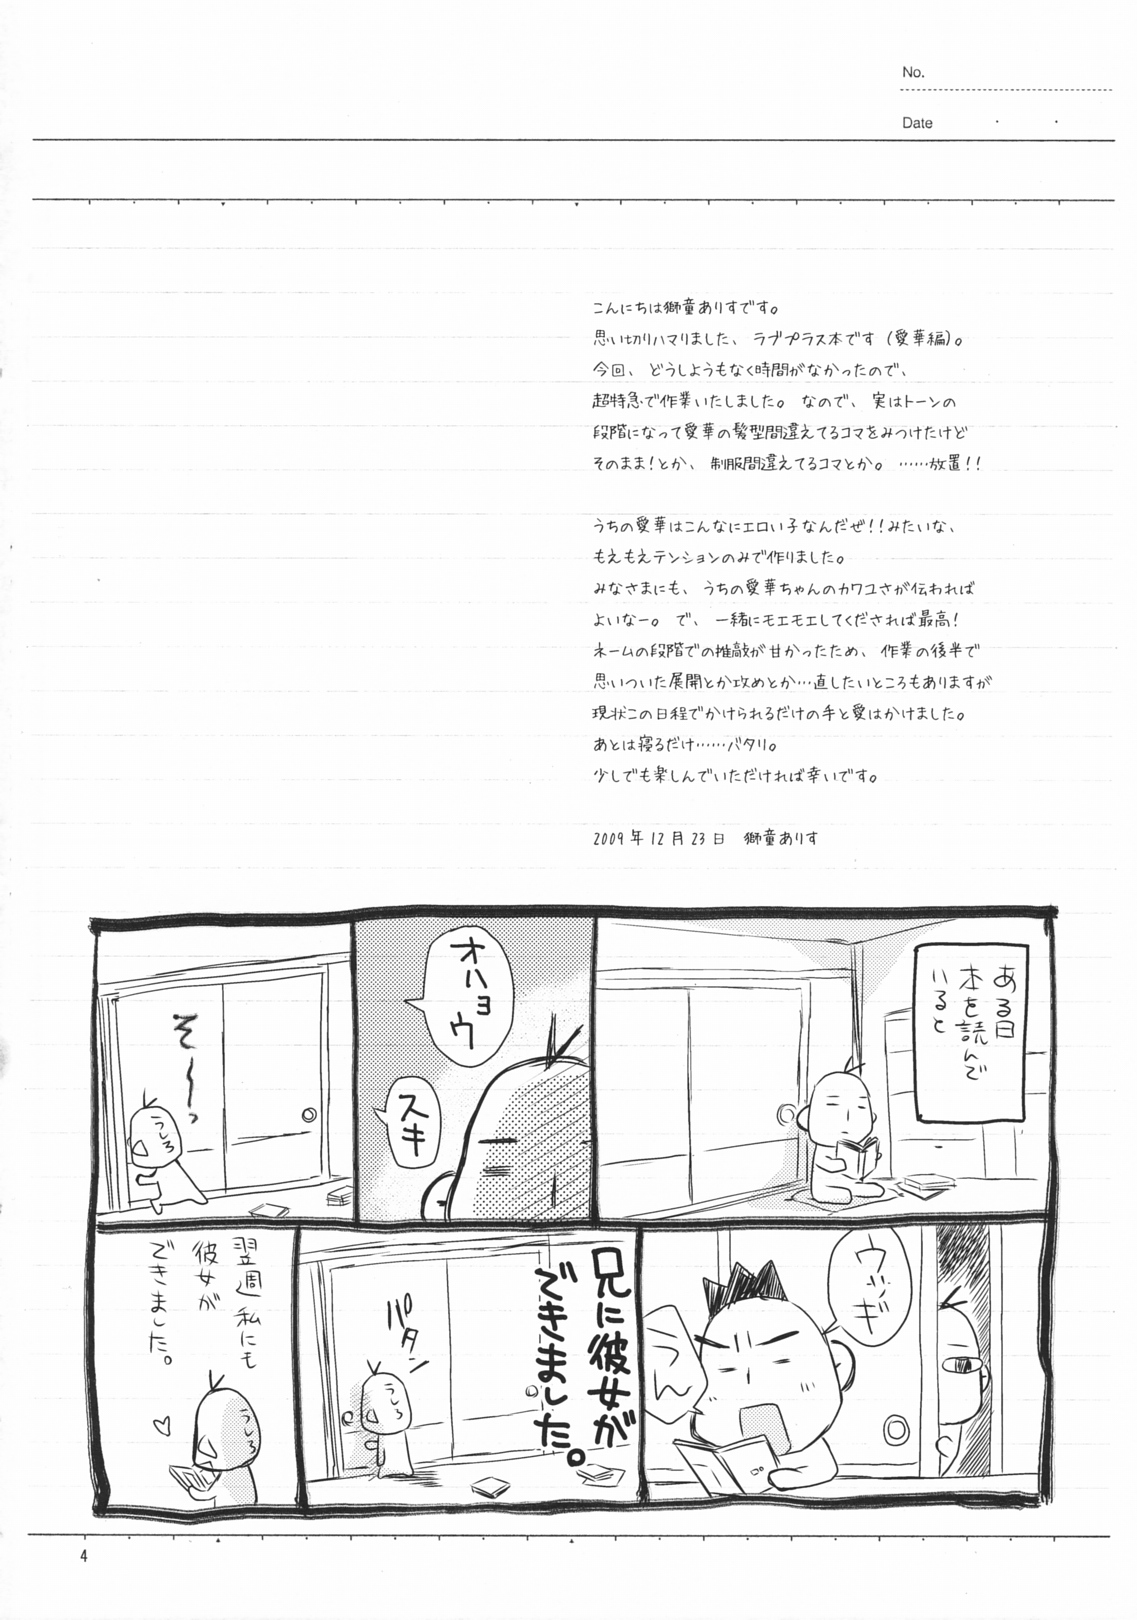 No.
Date
こんにちは獅童ありすです。
思い切りハマりました、ラブプラス本です（愛華編）。
今回、どうしようもなく時間がなかったので、
超特急で作業いたしました。なので、実はトーンの
段階になって愛華の髪型間違えてるコマをみつけたけど
そのまま！とか、制服間違えてるコマとか。……放置！！
うちの愛華はこんなにエロい子なんだぜ！！みたいな、
もえもえテンションのみで作りました。
みなさまにも、うちの愛華ちゃんのカワユさが伝われば
よいなー。で、一緒にモエモエしてくだされば最高！
ネームの段階での推敲が甘かったため、作業の後半で
思いついた展開とか攻めとか…直したいところもありますが
現状この日程でかけられるだけの手と愛はかけました。
あとは寝るだけ……バタリ。
少しでも楽しんでいただければ幸いです。
2009年12月23日 獅童ありす
ある日
本を読んで
いると
オハヨウ
スキ
そ〜っ
うしろ
ウッギ
うん
兄に彼女が
できました。
パタン
うしろ
翌週 私にも
彼女が
できました。
うしろ
4